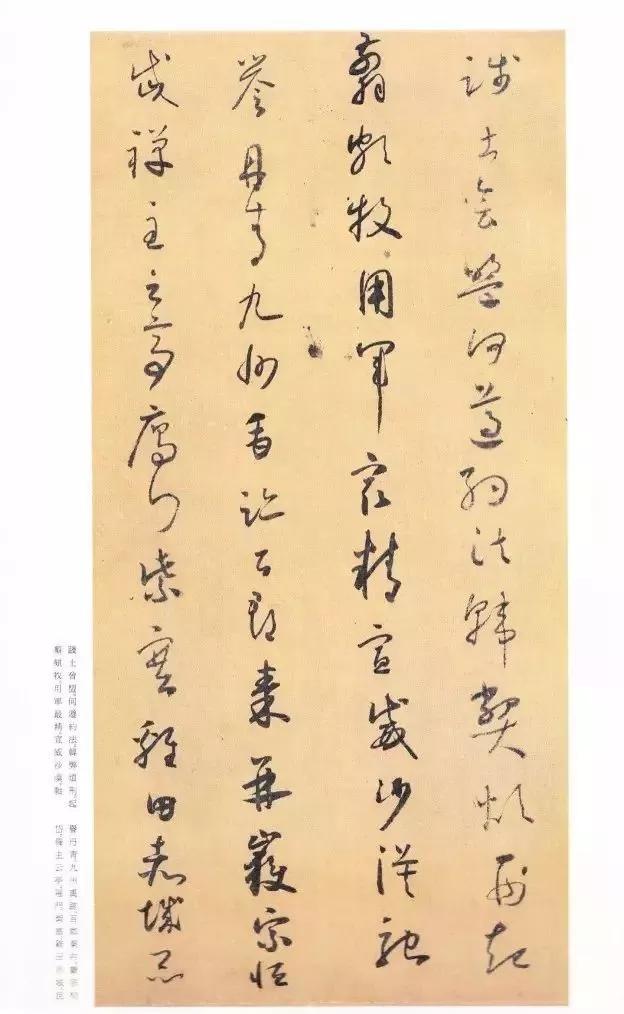 踐土會盟何遵約法韓弊煩刑起
翦頗牧用軍最精宣威沙漠馳
譽丹青九州禹跡百郡秦并嶽宗恒
岱禪主云亭雁門紫塞雞田赤城昆
踐土會盟,何遵約法,韓弊煩刑,起
翦頗牧,用軍最精,宣威沙漠,馳
譽丹青,九州禹跡,百郡秦并,嶽宗恒
岱,禪主云亭,雁門紫塞,雞田赤城,昆